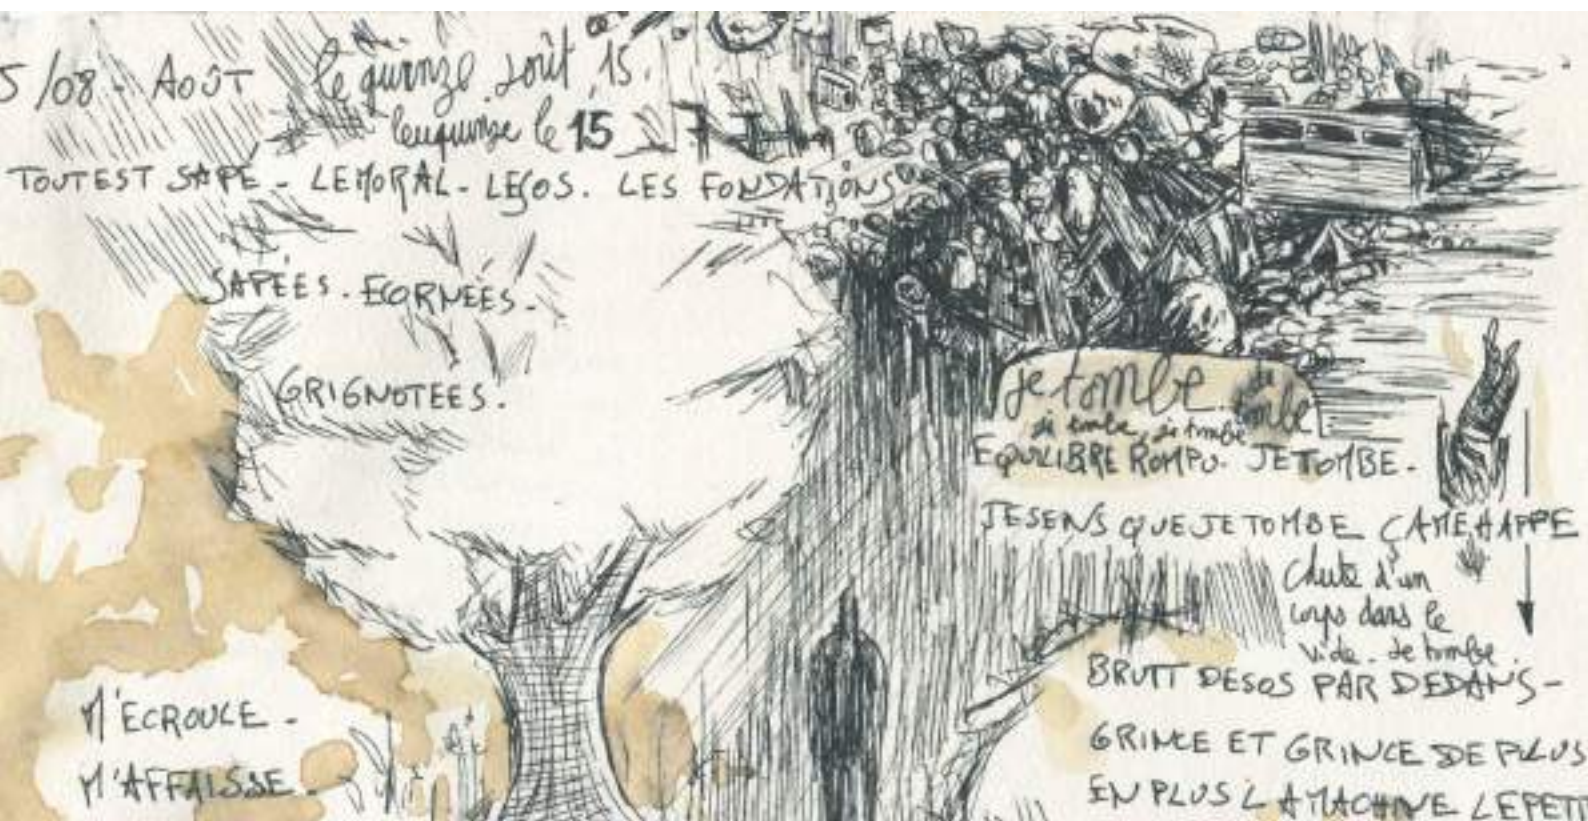 5/08. AOÛT le quinze août 15.
lequinze le 15
TOUTEST SAPÉ - LEMORAL - LESOS. LES FONDATIONS
SAPÉES. ECORNÉES.
GRIGNOTEES.
je tombe.. je tombe
je tombe, je tombe
EQUILIBRE ROMPU. JETOMBE.
JESENS QUEJETOMBE ÇAMEHAPPE
Chute d'un
corps dans le
vide. Je tombe.
BRUIT DESOS PAR DEDANS -
M'ECROULE -
GRINCE ET GRINCE DE PLUS
M'AFFAISSE.
EN PLUS LAMACHINE LEPETIT